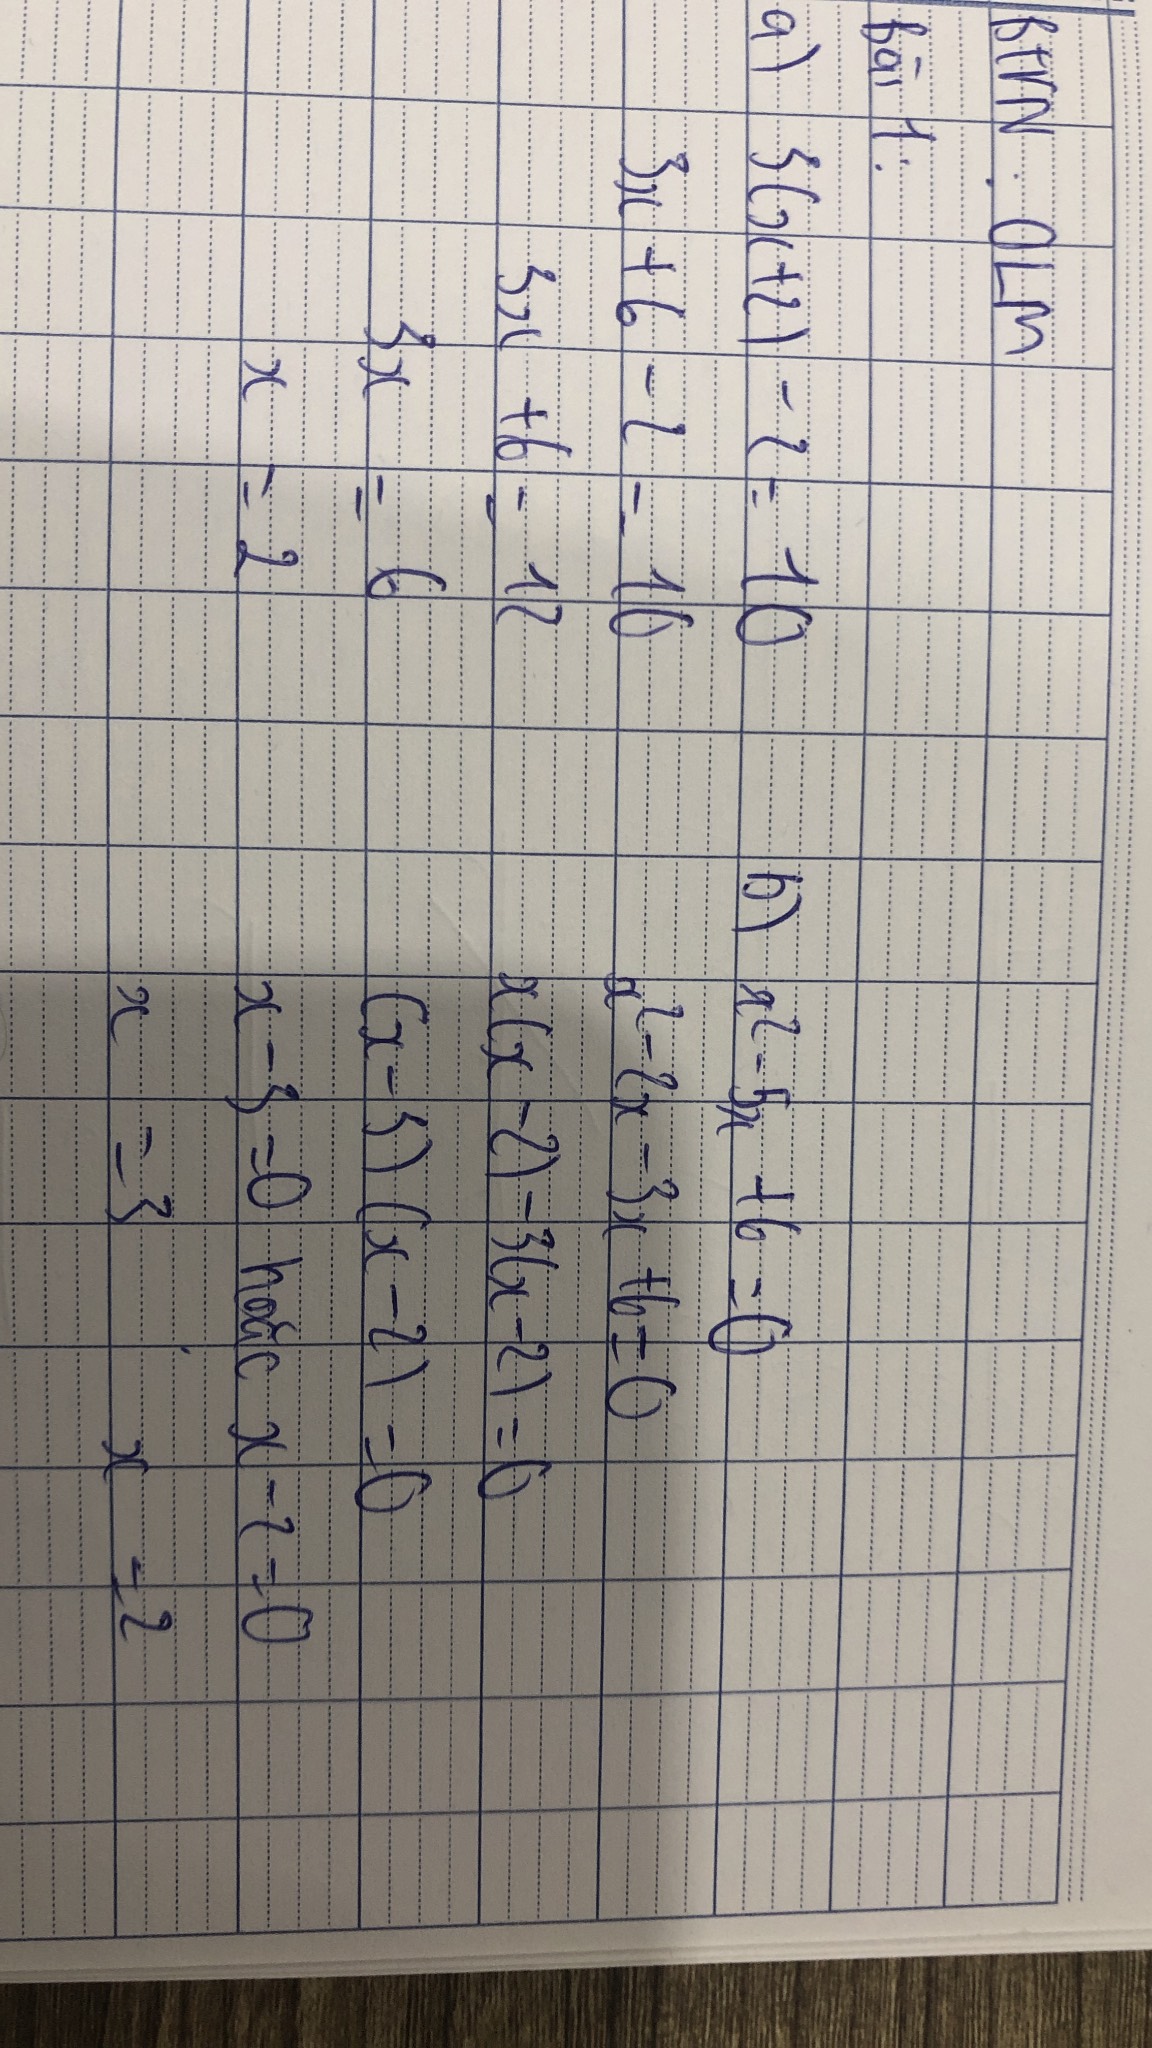 BTVN: OLM
bài 1:
a) 3(x+2) - 2 = 10
3x + 6 - 2 = 10
3x + 6 = 12
3x = 6
x = 2
b) x² - 5x + 6 = 0
x² - 2x - 3x + 6 = 0
x(x - 2) - 3(x - 2) = 0
(x - 3)(x - 2) = 0
x - 3 = 0 hoặc x - 2 = 0
x = 3 x = 2